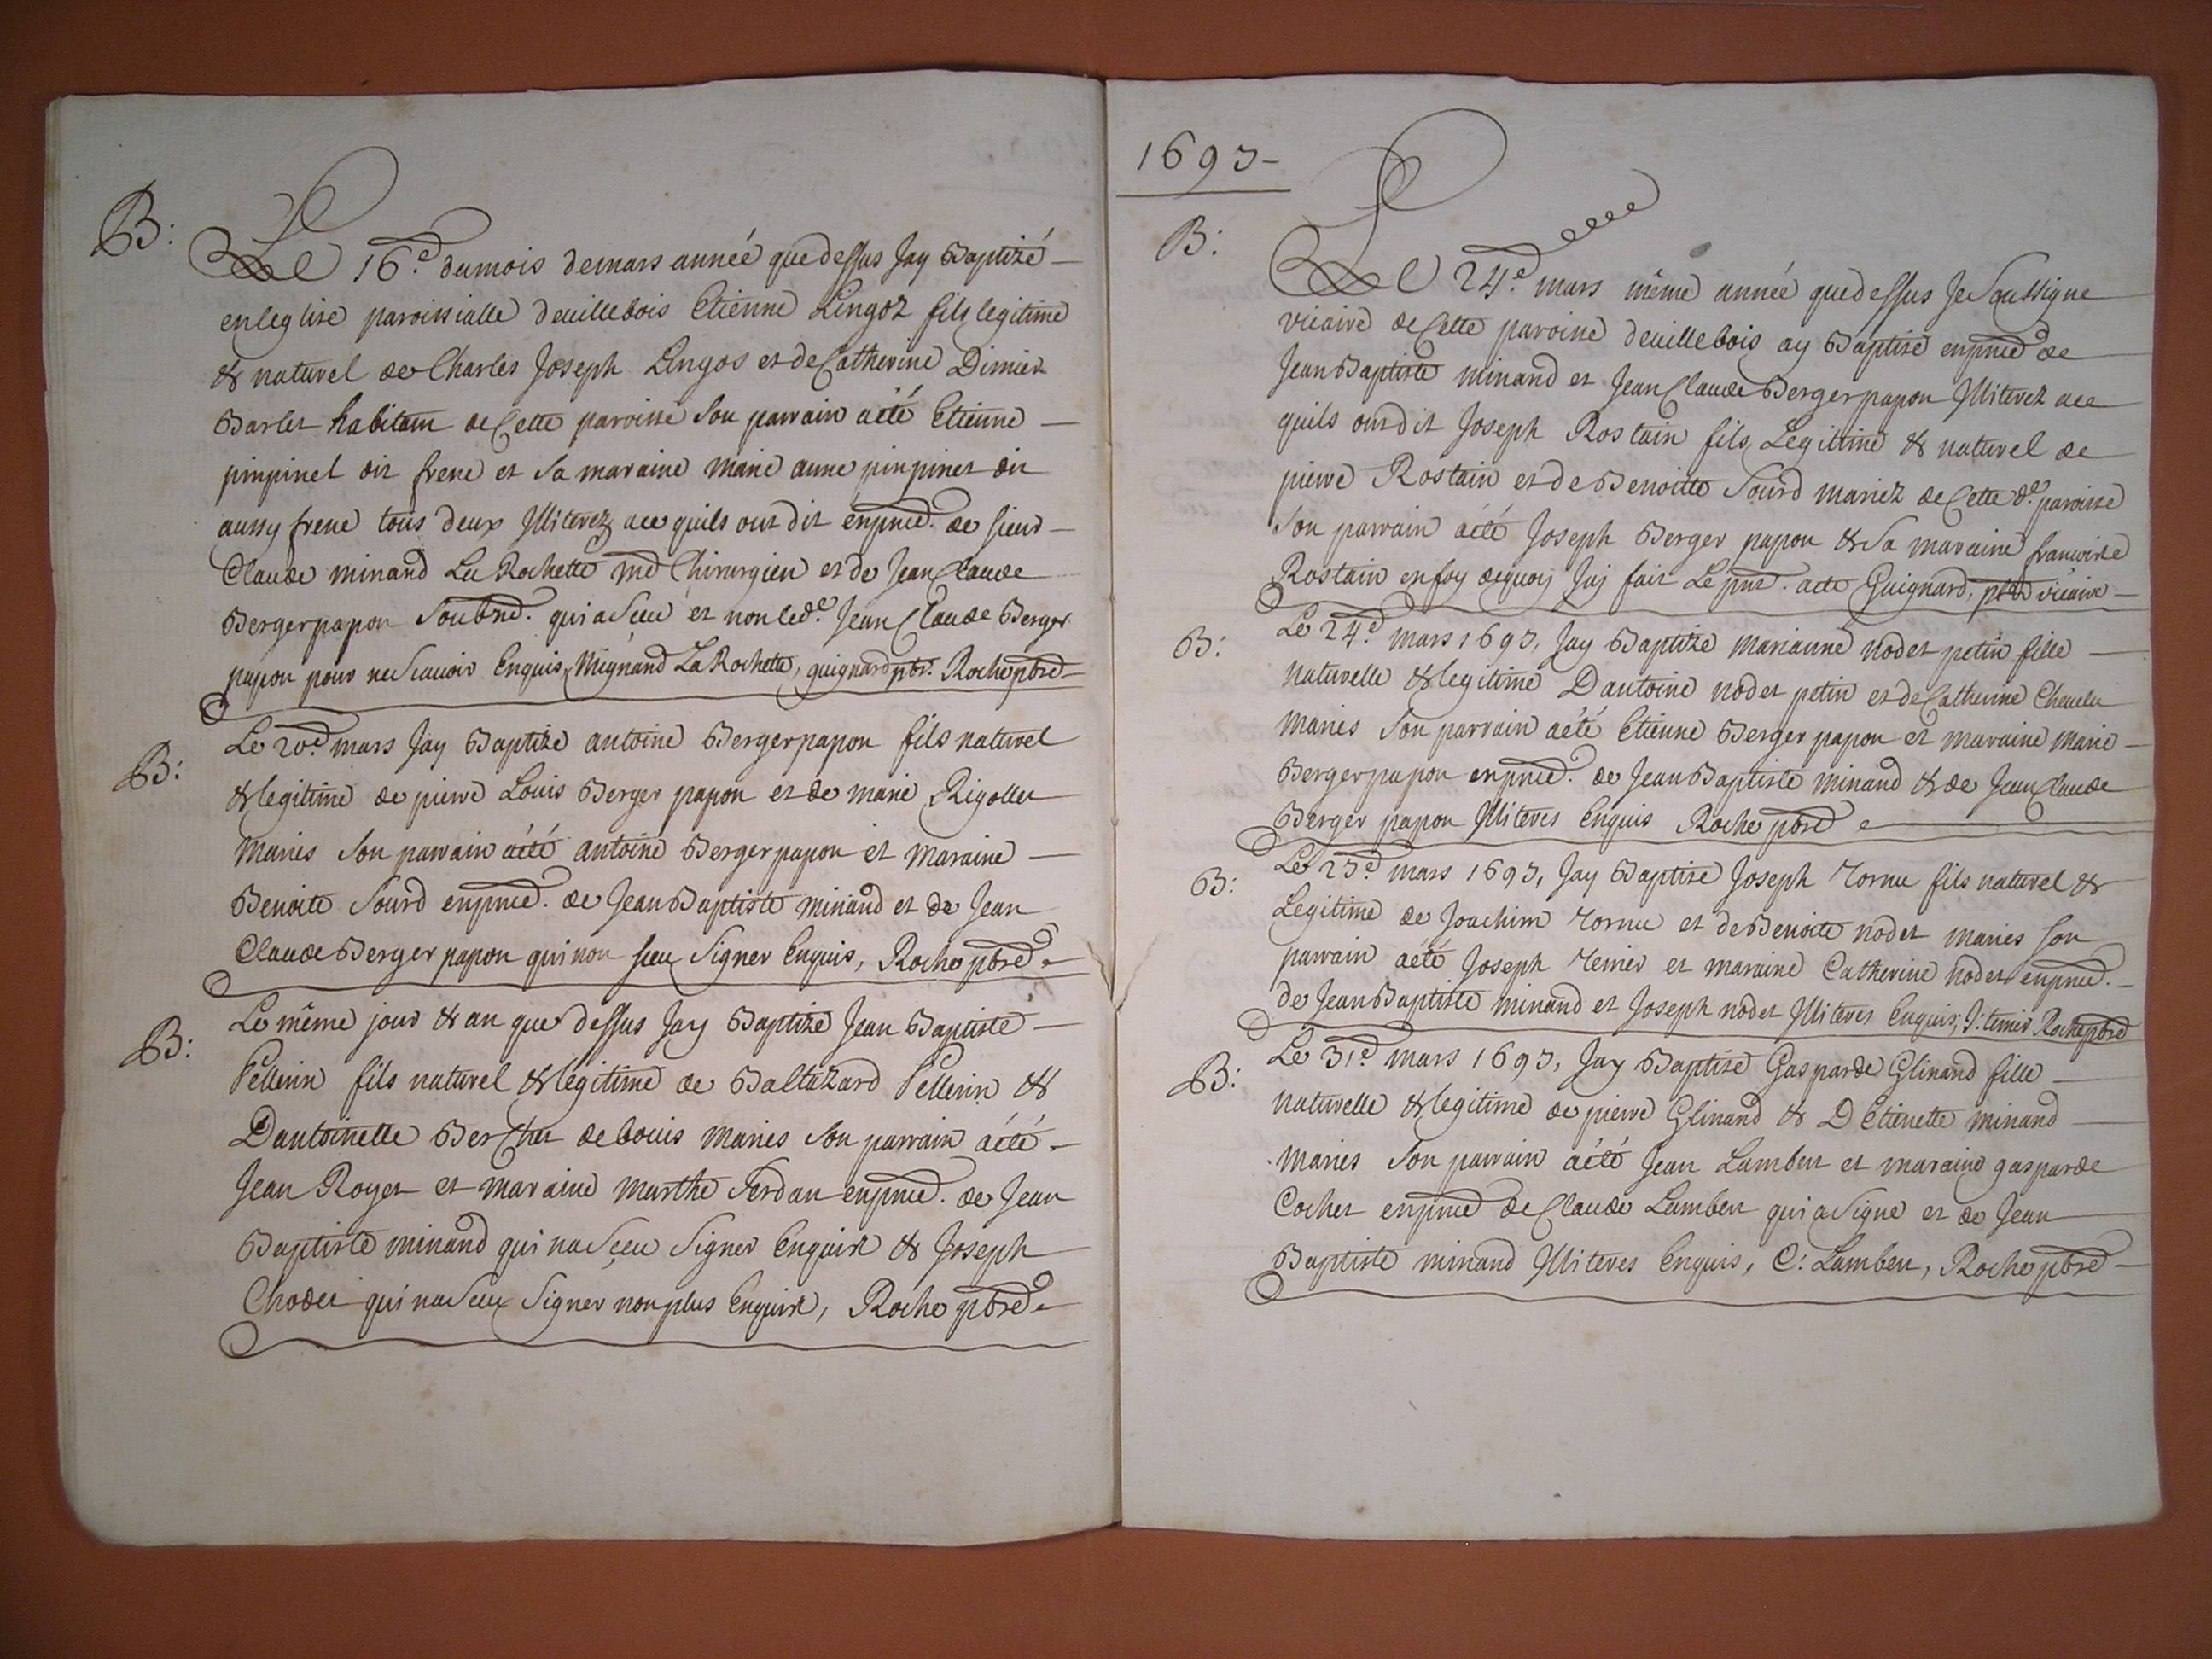 B:
Le 16.e dumois demars année quedessus Jay Baptizé
enleglise paroissialle deuillebois Etienne Lingoz fils legitime
& naturel de Charles Joseph Lingos et de Catherine Dimier
Barlet habitam de Cette paroisse Son parrain aété Etienne
pinpinel dit frene et Sa maraine marie anne pinpinet dit
aussy frene tous deux Illiterez ace quils ont dit enpnce. de sieur
Claude minand La Rochette md Chirurgien et de Jean Claude
Berger papon Soubné. qui a Sceu et non led.e Jean Claude Berger
papon pour ne Scauoir Enquis, Mignand La Rochette, guignard pbr. Roche pbre
B:
Le 20.e mars Jay Baptizé antoine Berger papon fils naturel
& legitime de pierre Louis Berger papon et de marie Rigollet
maries Son parrain aété antoine Berger papon et Maraine
Benoite Sourd enpnce. de Jean Baptiste minand et de Jean
Claude Berger papon qui non sceu Signer Enquis, Roche pbre
B:
Le même jour & an que dessus Jay Baptizé Jean Baptiste
Pellerin fils naturel & legitime de Baltazard Pellerin &
Dantoinette Berchet de bouis maries Son parrain aété
Jean Royet et maraine marthe Ferdan enpnce. de Jean
Baptiste minand qui na Sceu Signer Enquist & Joseph
Chodet qui na Sceu Signer nonplus Enquist, Roche pbre
1693
B:
Le 24.e mars même année quedessus Je Soussigne
vicaire de Cette paroisse deuillebois ay Baptisé enpnce de
Jean Baptiste minand et Jean Claude Berger papon Illiterez ace
quils ont dit Joseph Rostain fils Legitime & naturel de
pierre Rostain et de Benoitte Sourd mariez de Cette d.e paroisse
Son parrain aété Joseph Berger papon & Sa maraine francoise
Rostain enfoy dequoy Jaj fait Le pnt. acte Guignard, pbre vicaire
B:
Le 24.e mars 1693, Jay Baptizé marianne nodet petin fille
naturelle & legitime Dantoine nodet petin et de Catherine Cheuelu
maries Son parrain aété Etienne Berger papon et maraine marie
Berger papon enpnce. de Jean Baptiste minand & de Jean Claude
Berger papon Illiteres Enquis Roche pbre
B:
Le 25.e mars 1693, Jay Baptisé Joseph Tornu fils naturel &
Legitime de Joachim Tornu et de Benoite nodet maries Son
parrain aété Joseph Temier et maraine Catherine nodet enpnce.
de Jean Baptiste minand et Joseph nodet Illiteres Enquis, J: temier Roche pbre
B:
Le 31.e mars 1693, Jay Baptisé Gasparde Glinand fille
naturelle & legitime de pierre Glinand & D Etienette minand
maries Son parrain aété Jean Lambert et maraine gasparde
Cochet enpnce de Claude Lambert qui a Signe et de Jean
Baptiste minand Illiteres Enquis, C: Lambert, Roche pbre